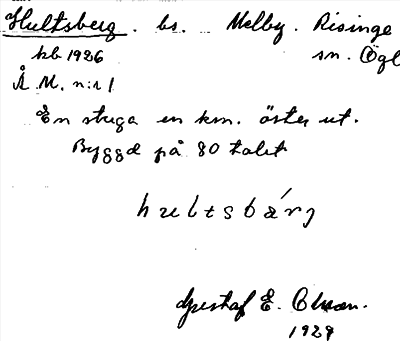 Hultsberg. bs. Melby. Risinge
kb 1926 sn. Ögl
Å M. n:r 1
En stuga en km. öster ut.
Byggd på 80 talet
hultsbárj
Gustaf E. Olsson.
1929